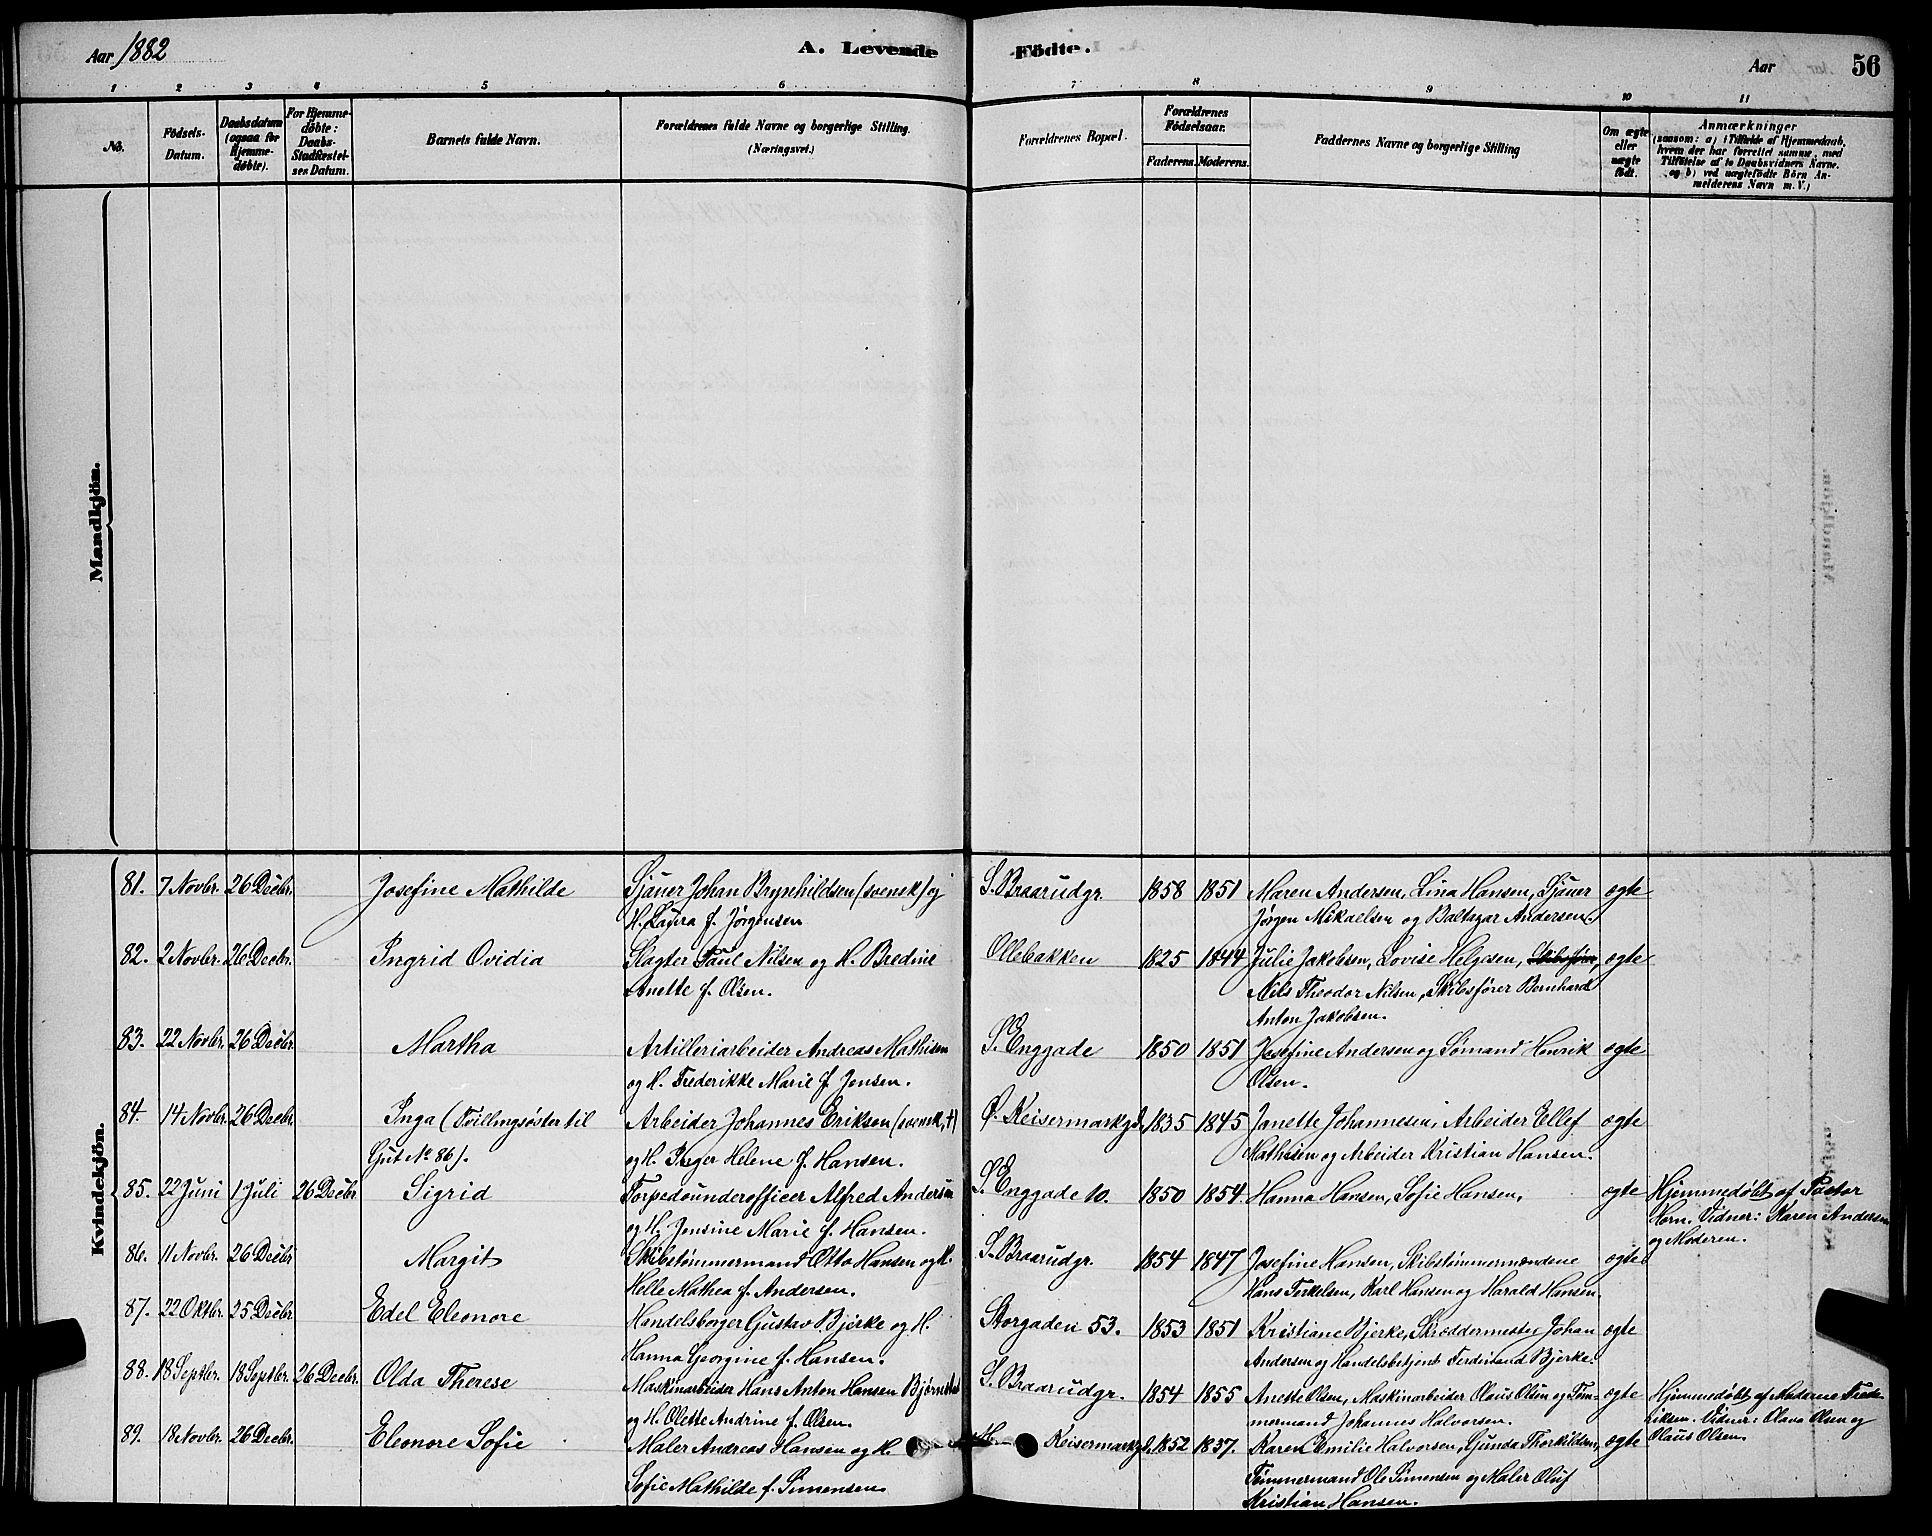 Aar 1882
A. Levende Födte.
Aar 56
1 2 3 4 5 6 7 8 9 10 11
No.
Födsels-Datum.
Daabsdatum (ogsaa for Hjemmedöbte).
For Hjemmedöbte: Daabs-Stadfæstelses Datum.
Barnets fulde Navn.
Forældrenes fulde Navne og borgerlige Stilling. (Næringsvei.)
Forældrenes Bopæl.
Forældrenes Födselsaar.
Faderens. Moderens.
Faddernes Navne og borgerlige Stilling
Om ægte eller uægte födt.
Anmærkninger
(saasom: a) i Tilfælde af Hjemmedaab, hvem der har forrettet samme, med Tilföielse af to Daabsvidners Navne. og b) ved uægtefödte Börn Anmelderens Navn m. V.)
Mandkjön.
Kvindekjön.
81. 7 Novbr. 26 Decbr. Josefine Mathilde Sjauer Johan Brynhildsen (svensk) og S. Braarudgr. 1858 1851 Maren Andersen, Lina Hansen, Sjauer ægte
H. Laura f. Jørgensen Jørgen Mikaelsen og Baltazar Andersen.
82. 2 Novbr. 26 Decbr. Ingrid Ovidia Slagter Paul Nilsen og H. Bredine Ollebakken 1825 1844 Julie Jakobsen, Lovise Helgesen, ægte
Anette f. Olsen. Nils Theodor Nilsen, Skibsfører Bernhard
Anton Jakobsen.
83. 22 Novbr. 26 Decbr. Martha Artilleriarbeider Andreas Mathisen S. Enggade 1850 1851 Josefine Andersen og Sømand Henrik ægte
og H. Frederikke Marie f. Jensen. Olsen.
84. 14 Novbr. 26 Decbr. Inga (Tvillingsøster til Arbeider Johannes Eriksen (svensk, †) Ø. Keisermarkgd. 1835 1845 Janette Johannesen, Arbeider Ellef ægte
Gut No 86). og H. Inger Helene f. Hansen. Mathisen og Arbeider Kristian Hansen.
85. 22 Juni 1 Juli 26 Decbr Sigrid Torpedounderofficer Alfred Andersen S. Enggade 10. 1850 1854. Hanna Hansen, Sofie Hansen, ægte Hjemmedøbt af Pastor
og H. Jensine Marie f. Hansen. Horn. Vidner: Karen Andersen
og Moderen.
86. 11 Novbr. 26 Decbr Margit Skibstømmermand Otto Hansen og H. S. Braarudgr. 1854 1847 Josefine Hansen, Skibstømmermændene ægte
Helle Mathea f. Andersen. Hans Terkelsen, Karl Hansen og Harald Hansen.
87. 22 Oktbr. 25 Decbr Edel Eleonore Handelsborger Gustav Bjerke og H. Storgaden 53. 1853 1851 Kristiane Bjerke, Skræddermester Johan ægte
Hanna Georgine f. Hansen. Andersen og Handelsbetjent Ferdinand Bjerke.
88. 18 Septbr. 18 Septbr. 26 Decbr. Olda Therese Maskinarbeider Hans Anton Hansen Bjørnstad S. Braarudgr. 1854 1855 Anette Olsen, Maskinarbeider Olaus Olsen og Tøm- ægte Hjemmedøbt af Madame Fred-
og H. Olette Andrine f. Olsen. mermand Johannes Halvorsen. riksen. Vidner: Olava Olsen og
Olaus Olsen.
89. 18 Novbr. 26 Decbr. Eleonore Sofie Maler Andreas Hansen og H. Keisermarkgd. 1852 1857. Karen Emilie Halvorsen, Gunda Thorkildsen, ægte
Sofie Mathilde f. Simensen Tømmermand Ole Simensen og Maler Oluf
Kristian Hansen.